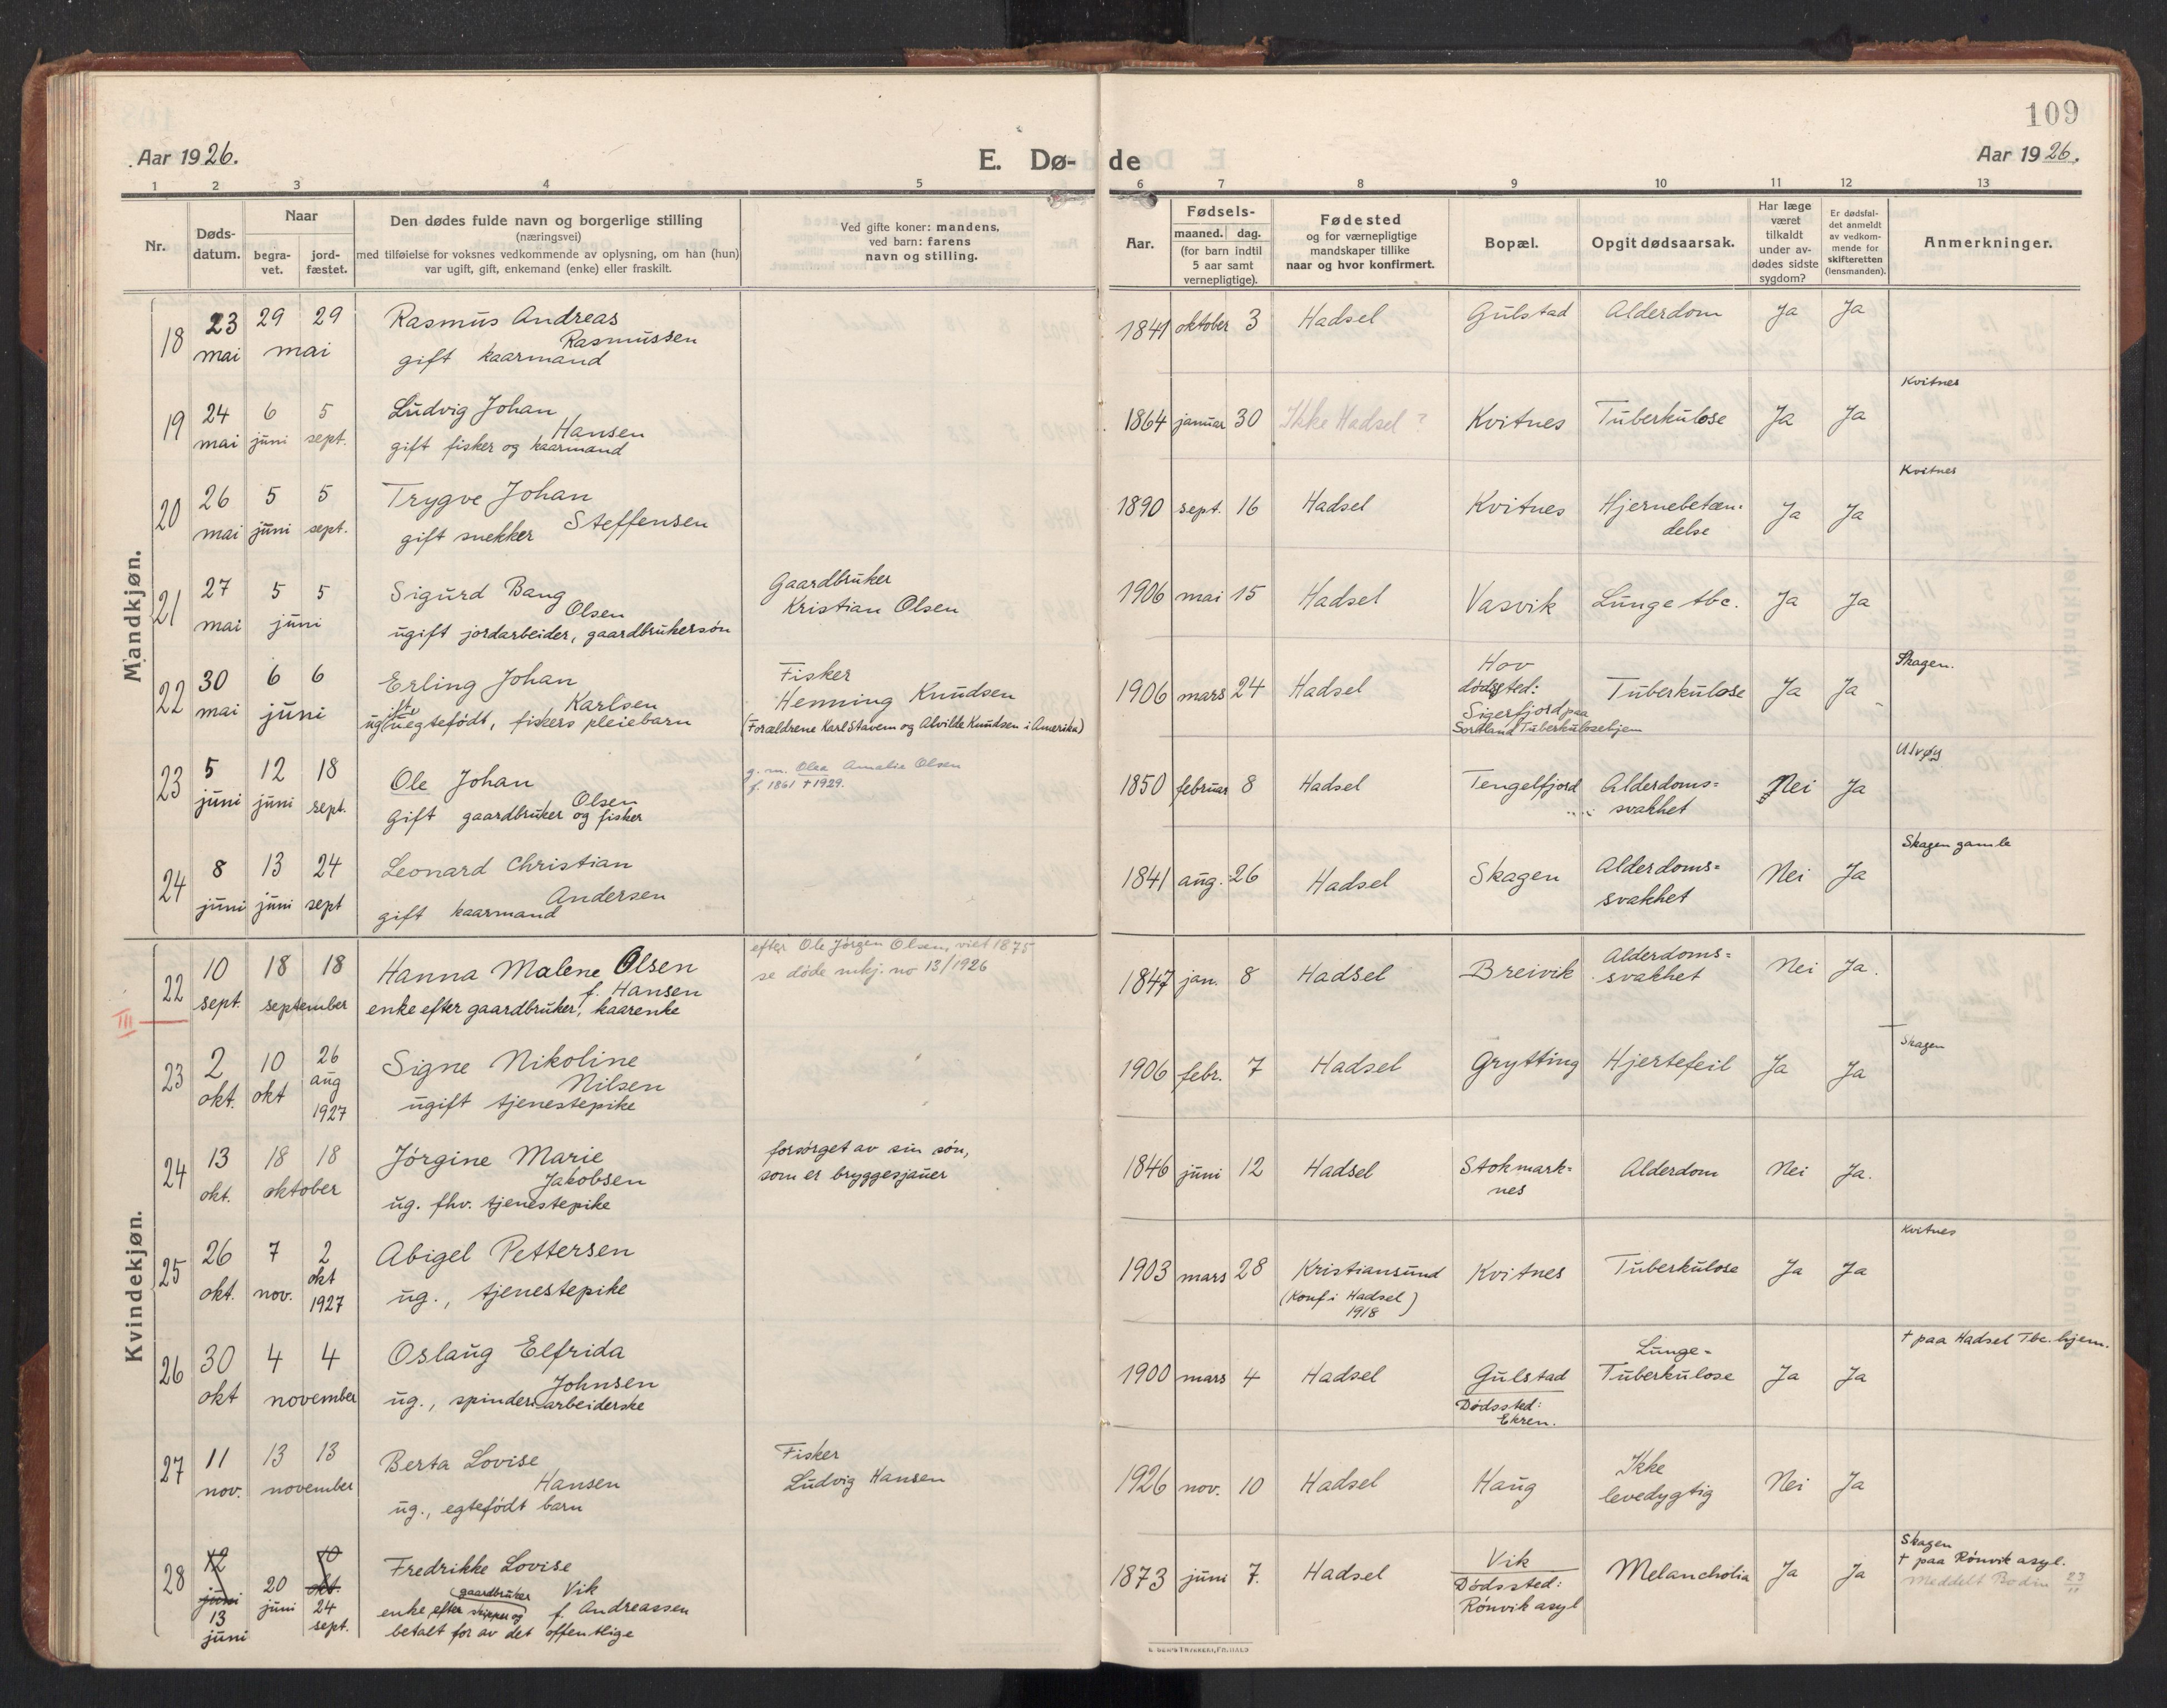 109
Aar 1926.
E. Dø-
de
Aar 1926.
1 2 3 4 5 6 7 8 9 10 11 12 13
Nr.
Døds-
datum.
Naar
begra-
vet.
jord-
fæstet.
Den dødes fulde navn og borgerlige stilling
(næringsvei)
med tilføielse for voksnes vedkommende av oplysning, om han (hun)
var ugift, gift, enkemand (enke) eller fraskilt.
Ved gifte koner: mandens,
ved barn: farens
navn og stilling.
Aar.
Fødsels-
maaned. dag.
(for barn indtil
5 aar samt
vernepligtige).
Fødested
og for værnepligtige
mandskaper tillike
naar og hvor konfirmert.
Bopæl.
Opgit dødsaarsak.
Har læge
været
tilkaldt
under av-
dødes sidste
sygdom?
Er dødsfal-
det anmeldt
av vedkom-
mende for
skifteretten
(lensmanden).
Anmerkninger.
Mandkjøn.
18
23
mai
29 29
mai
Rasmus Andreas
Rasmussen
gift kaarmand
1841 oktober 3
Hadsel
Gulstad
Alderdom
Ja
Ja
19
24
mai
6
juni
5
sept.
Ludvig Johan
Hansen
gift fisker og kaarmand
1864 januar 30
Ikke Hadsel ?
Kvitnes
Tuberkulose
Ja
Ja
Kvitnes
20
26
mai
5
juni
5
sept.
Trygve Johan
Steffensen
gift snekker
1890 sept. 16
Hadsel
Kvitnes
Hjernebetæn-
delse
Ja
Ja
Kvitnes
21
27
mai
5 5
juni
Sigurd Bang
Olsen
ugift jordarbeider, gaardbrukersøn
Gaardbruker
Kristian Olsen
1906 mai 15
Hadsel
Vasvik
Lunge tbc.
Ja
Ja
22
30
mai
6 6
juni
Erling Johan
Karlsen
ugift uegtefødt, fiskers pleiebarn
Fisker
Henning Knudsen
(Forældrene Karl Stavem og Alvilde Knudsen i Amerika)
1906 mars 24
Hadsel
Hov
dødssted:
Sigerfjord paa
Sortland Tuberkulosehjem
Tuberkulose
Ja
Ja
Skagen.
23
5
juni
12
juni
18
sept.
Ole Johan
Olsen
Gift gaardbruker og fisker
g. m. Olea Amalie Olsen
f. 1861 † 1929.
1850 februar 8
Hadsel
Tengelfjord
Alderdoms=
svakhet
Nei
Ja
Ulvøy
24
8
juni
13
juni
24
sept
Leonard Christian
Andersen
gift kaarmand
1841 aug. 26
Hadsel
Skagen
Alderdoms=
svakhet
Nei
Ja
Skagen gamle
Kvindekjøn.
22
10
sept.
18 18
september
Hanna Malene Olsen
f. Hansen
enke efter gaardbruker, kaarenke
efter Ole Jørgen Olsen, viet 1875
se døde mkj. no 13/1926
1847 jan. 8
Hadsel
Breivik
Alderdoms=
svakhet
Nei
Ja.
III
23
2
okt.
10
okt
26
aug
1927
Signe Nikoline
Nilsen
ugift tjenestepike
1906 febr. 7
Hadsel
Grytting
Hjertefeil
Ja
Ja
Skagen
24
13
okt.
18 18
oktober
Jørgine Marie
Jakobsen
ug. fhv. tjenestepike
forsørget av sin søn,
som er bryggesjauer
1846 juni 12
Hadsel
Stokmark=
nes
Alderdom
Nei
Ja.
25
26
okt.
7
nov.
2
okt
1927
Abigel Pettersen
ug., tjenestepike
1903 mars 28
Kristiansund
(Konf i Hadsel)
1918
Kvitnes
Tuberkulose
Ja
Ja
Kvitnes
26
30
okt
4 4
november
Oslaug Elfrida
Johnsen
ug., spinderiarbeiderske
1900 mars 4
Hadsel
Gulstad
Dødssted:
Ekren.
Lunge-
Tuberkulose
Ja
Ja
† paa Hadsel Tbc. hjem.
27
11
nov.
13 13
november
Berta Lovise
Hansen
ug., egtefødt barn
Fisker
Ludvig Hansen
1926 nov. 10
Hadsel
Haug
Ikke
levedygtig
Nei
Ja
28
12
juni
13
juni
20
juni
10
okt.
24
sept.
Fredrikke Lovise
Vik
gaardbruker
enke efter skipper og f. Andreassen
betalt for av det offentlige
1873 juni 7.
Hadsel
Vik
Dødssted:
Rønvik asyl
Melancholia
Ja
Ja
Skagen
† paa Rønvik asyl.
Meddelt Bodin 23/11